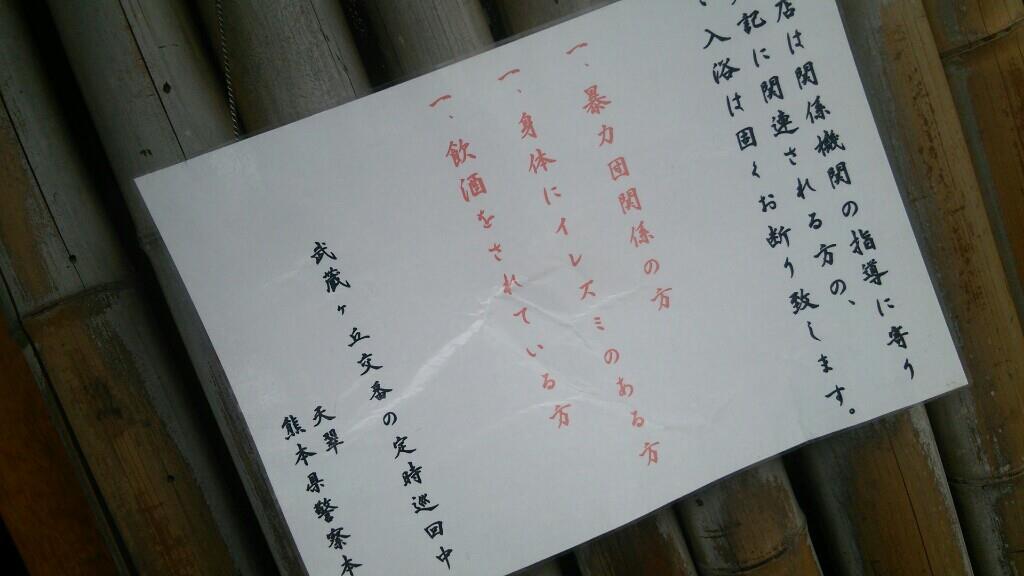 店は関係機関の指導に寄り
記に関連される方の、
入浴は固くお断り致します。
一、暴力団関係の方
一、身体にイレズミのある方
一、飲酒をされている方
武蔵ヶ丘交番の定時巡回中
天翠
熊本県警察本